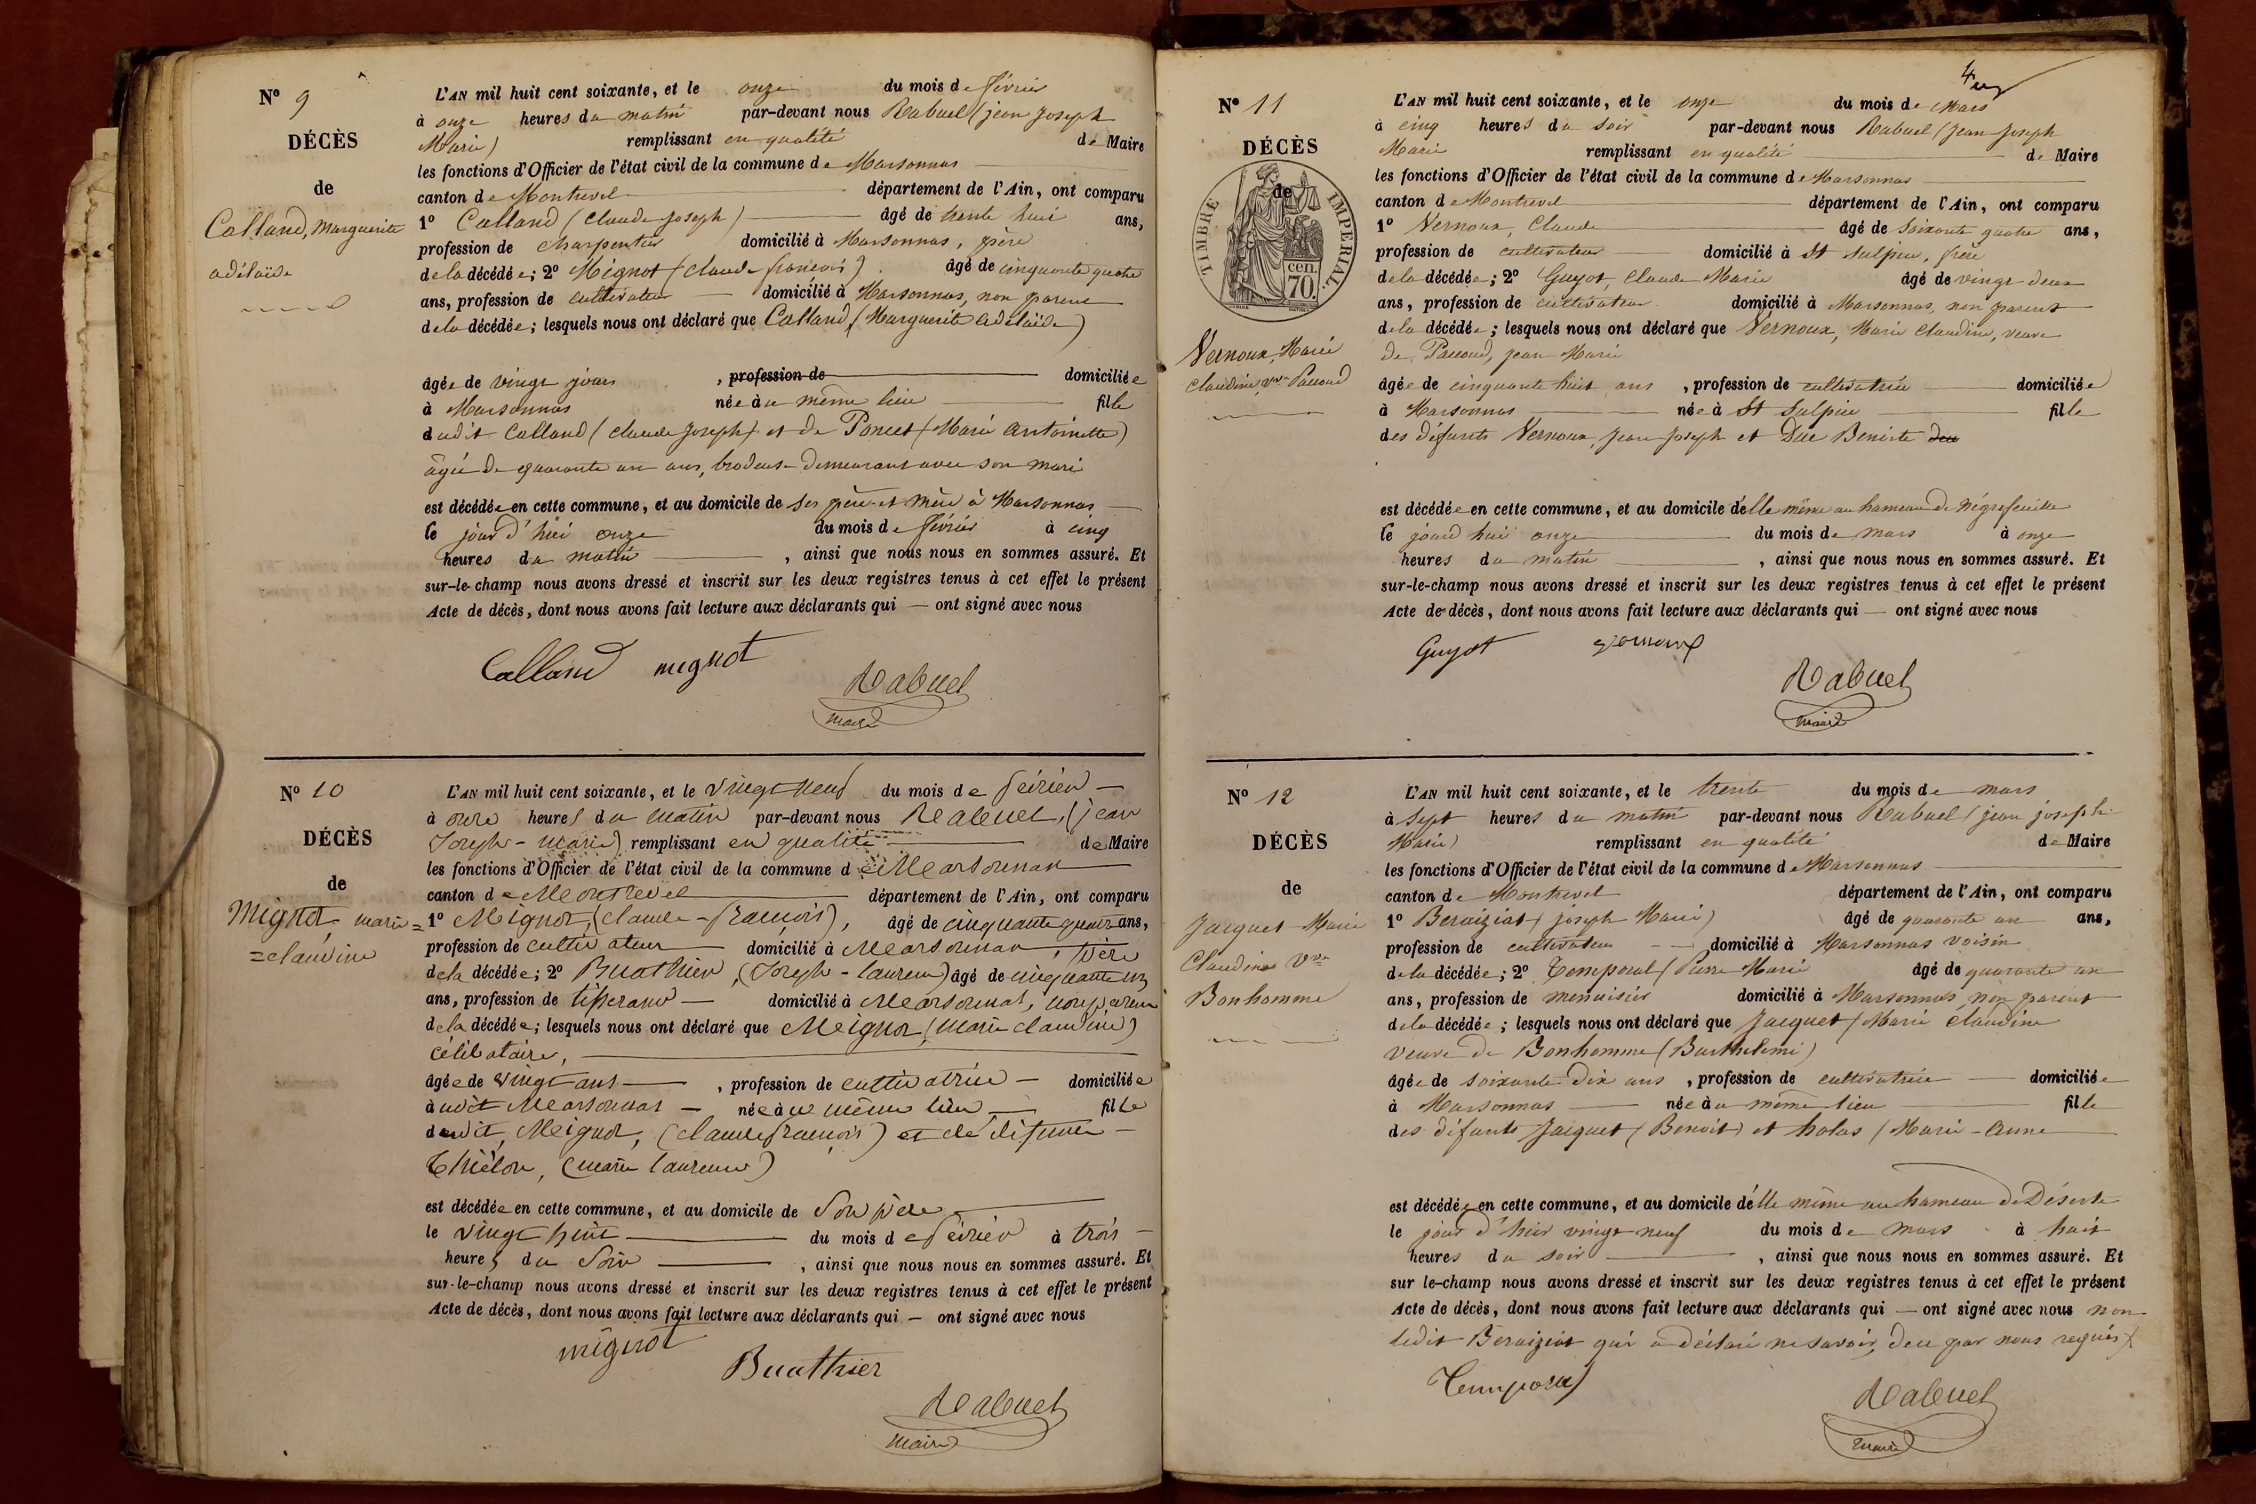 Nº 9
DÉCÈS
de
Calland, Marguerite
adélaïde
L'AN mil huit cent soixante, et le onze du mois de février
à onze heures du matin par-devant nous Rabuel (jean Joseph
Marie) remplissant en qualité de Maire
les fonctions d'Officier de l'état civil de la commune de Marsonnas
canton de Montrevel département de l'Ain, ont comparu
1º Calland (Claude Joseph) âgé de trente huit ans,
profession de charpentier domicilié à Marsonnas, père
de la décédée; 2º Mignot (Claude françois) âgé de cinquante quatre
ans, profession de cultivateur domicilié à Marsonnas, non parent
de la décédée; lesquels nous ont déclaré que Calland (Marguerite adélaïde)
âgée de vingt jours , profession de domiciliée
à Marsonnas née au même lieu fille
dudit Calland (Claude Joseph) et de Poncet (Marie antoinette)
âgée de quarante un ans, brodeuse demeurant avec son mari
est décédée en cette commune, et au domicile de ses père et mère à Marsonnas
le jour d'hui onze du mois de février à cinq
heures du matin , ainsi que nous nous en sommes assuré. Et
sur-le-champ nous avons dressé et inscrit sur les deux registres tenus à cet effet le présent
Acte de décès, dont nous avons fait lecture aux déclarants qui — ont signé avec nous
Calland mignot
Rabuel
maire
Nº 10
DÉCÈS
de
Mignot, marie=
=claudine
L'AN mil huit cent soixante, et le vingt neuf du mois de février
à onze heures du matin par-devant nous Rabuel, (jean
Joseph-marie) remplissant en qualité de Maire
les fonctions d'Officier de l'état civil de la commune de Marsonnas
canton de Montrevel département de l'Ain, ont comparu
1º Mignot, (claude-françois), âgé de cinquante quatre ans,
profession de cultivateur domicilié à Marsonnas, père
de la décédée; 2º Buathier, (Joseph-laurent) âgé de cinquante un
ans, profession de tisserand domicilié à Marsonnas, non parent
de la décédée; lesquels nous ont déclaré que Mignot, (marie claudine)
célibataire,
âgée de vingt ans , profession de cultivatrice domiciliée
audit Marsonnas née au même lieu fille
dudit, Mignot, (claude françois) et de défunte
Thiélon, (marie laurence)
est décédée en cette commune, et au domicile de son père
le vingt huit du mois de février à trois
heures du soir , ainsi que nous nous en sommes assuré. Et
sur-le-champ nous avons dressé et inscrit sur les deux registres tenus à cet effet le présent
Acte de décès, dont nous avons fait lecture aux déclarants qui — ont signé avec nous
mignot
Buathier
Rabuel
maire
Nº 11
DÉCÈS
de
TIMBRE IMPERIAL
70 cen.
Vernoux, Marie
Claudine, vve Paccoud
L'AN mil huit cent soixante, et le onze du mois de Mars
à cinq heures du soir par-devant nous Rabuel (Jean Joseph
Marie remplissant en qualité de Maire
les fonctions d'Officier de l'état civil de la commune de Marsonnas
canton de Montrevel département de l'Ain, ont comparu
1º Vernoux, Claude âgé de soixante quatre ans,
profession de cultivateur domicilié à St Sulpice, frère
de la décédée; 2º Guyot, Claude Marie âgé de vingt deux
ans, profession de cultivateur domicilié à Marsonnas, non parent
de la décédée; lesquels nous ont déclaré que Vernoux, Marie Claudine, veuve
de Paccoud, jean Marie
âgée de cinquante huit ans , profession de cultivatrice domiciliée
à Marsonnas née à St Sulpice fille
des défunts Vernoux, Jean Joseph et Duc Benoite
est décédée en cette commune, et au domicile d'elle même au hameau de Négrefeuille
le jourd'hui onze du mois de mars à onze
heures du matin , ainsi que nous nous en sommes assuré. Et
sur-le-champ nous avons dressé et inscrit sur les deux registres tenus à cet effet le présent
Acte de décès, dont nous avons fait lecture aux déclarants qui — ont signé avec nous
Guyot
Rabuel
maire
Nº 12
DÉCÈS
de
Jacquet Marie
Claudine Vve
Bonhomme
L'AN mil huit cent soixante, et le trente du mois de mars
à sept heures du matin par-devant nous Rabuel (jean joseph
Marie) remplissant en qualité de Maire
les fonctions d'Officier de l'état civil de la commune de Marsonnas
canton de Montrevel département de l'Ain, ont comparu
1º Beraiziat (joseph Marie) âgé de quarante un ans,
profession de cultivateur domicilié à Marsonnas voisin
de la décédée; 2º Temporal (Pierre Marie âgé de quarante un
ans, profession de menuisier domicilié à Marsonnas non parent
de la décédée; lesquels nous ont déclaré que Jacquet (Marie Claudine
veuve de Bonhomme (Barthelemi)
âgée de soixante-dix ans , profession de cultivatrice domiciliée
à Marsonnas née au même lieu fille
des défunts Jacquet (Benoit) et (Marie-Anne
est décédée en cette commune, et au domicile d'elle même au hameau de Déserte
le jour d'hier vingt neuf du mois de mars à huit
heures du soir , ainsi que nous nous en sommes assuré. Et
sur le-champ nous avons dressé et inscrit sur les deux registres tenus à cet effet le présent
Acte de décès, dont nous avons fait lecture aux déclarants qui — ont signé avec nous non
ledit Beraiziat qui a déclaré ne savoir, de ce par nous requis
Temporal
Rabuel
maire